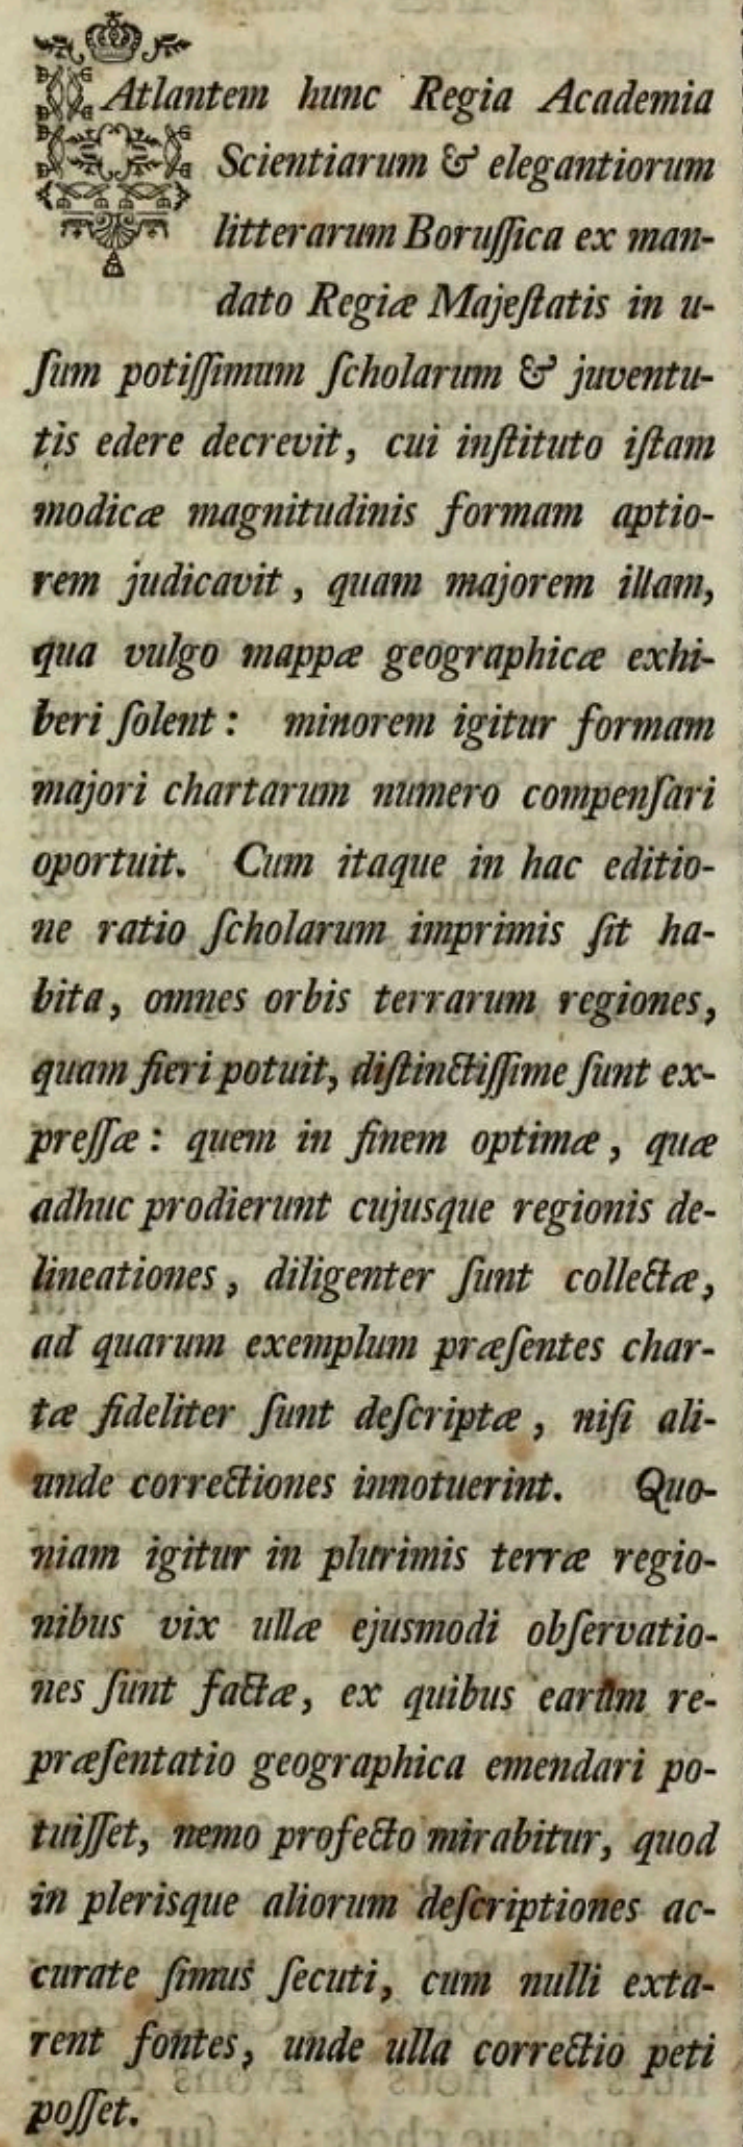 Atlantem hunc Regia Academia
Scientiarum & elegantiorum
litterarum Boruſſica ex man-
dato Regiæ Majeſtatis in u-
ſum potiſſimum ſcholarum & juventu-
tis edere decrevit, cui inſtituto iſtam
modicæ magnitudinis formam aptio-
rem judicavit, quam majorem illam,
qua vulgo mappæ geographicæ exhi-
beri ſolent: minorem igitur formam
majori chartarum numero compenſari
oportuit. Cum itaque in hac editio-
ne ratio ſcholarum imprimis ſit ha-
bita, omnes orbis terrarum regiones,
quam fieri potuit, diſtinctiſſime ſunt ex-
preſſæ: quem in finem optimæ, quæ
adhuc prodierunt cujusque regionis de-
lineationes, diligenter ſunt collectæ,
ad quarum exemplum præſentes char-
tæ fideliter ſunt deſcriptæ, niſi ali-
unde correctiones innotuerint. Quo-
niam igitur in plurimis terræ regio-
nibus vix ullæ ejusmodi obſervatio-
nes ſunt factæ, ex quibus earum re-
præſentatio geographica emendari po-
tuiſſet, nemo profecto mirabitur, quod
in plerisque aliorum deſcriptiones ac-
curate ſimus ſecuti, cum nulli exta-
rent fontes, unde ulla correctio peti
poſſet.